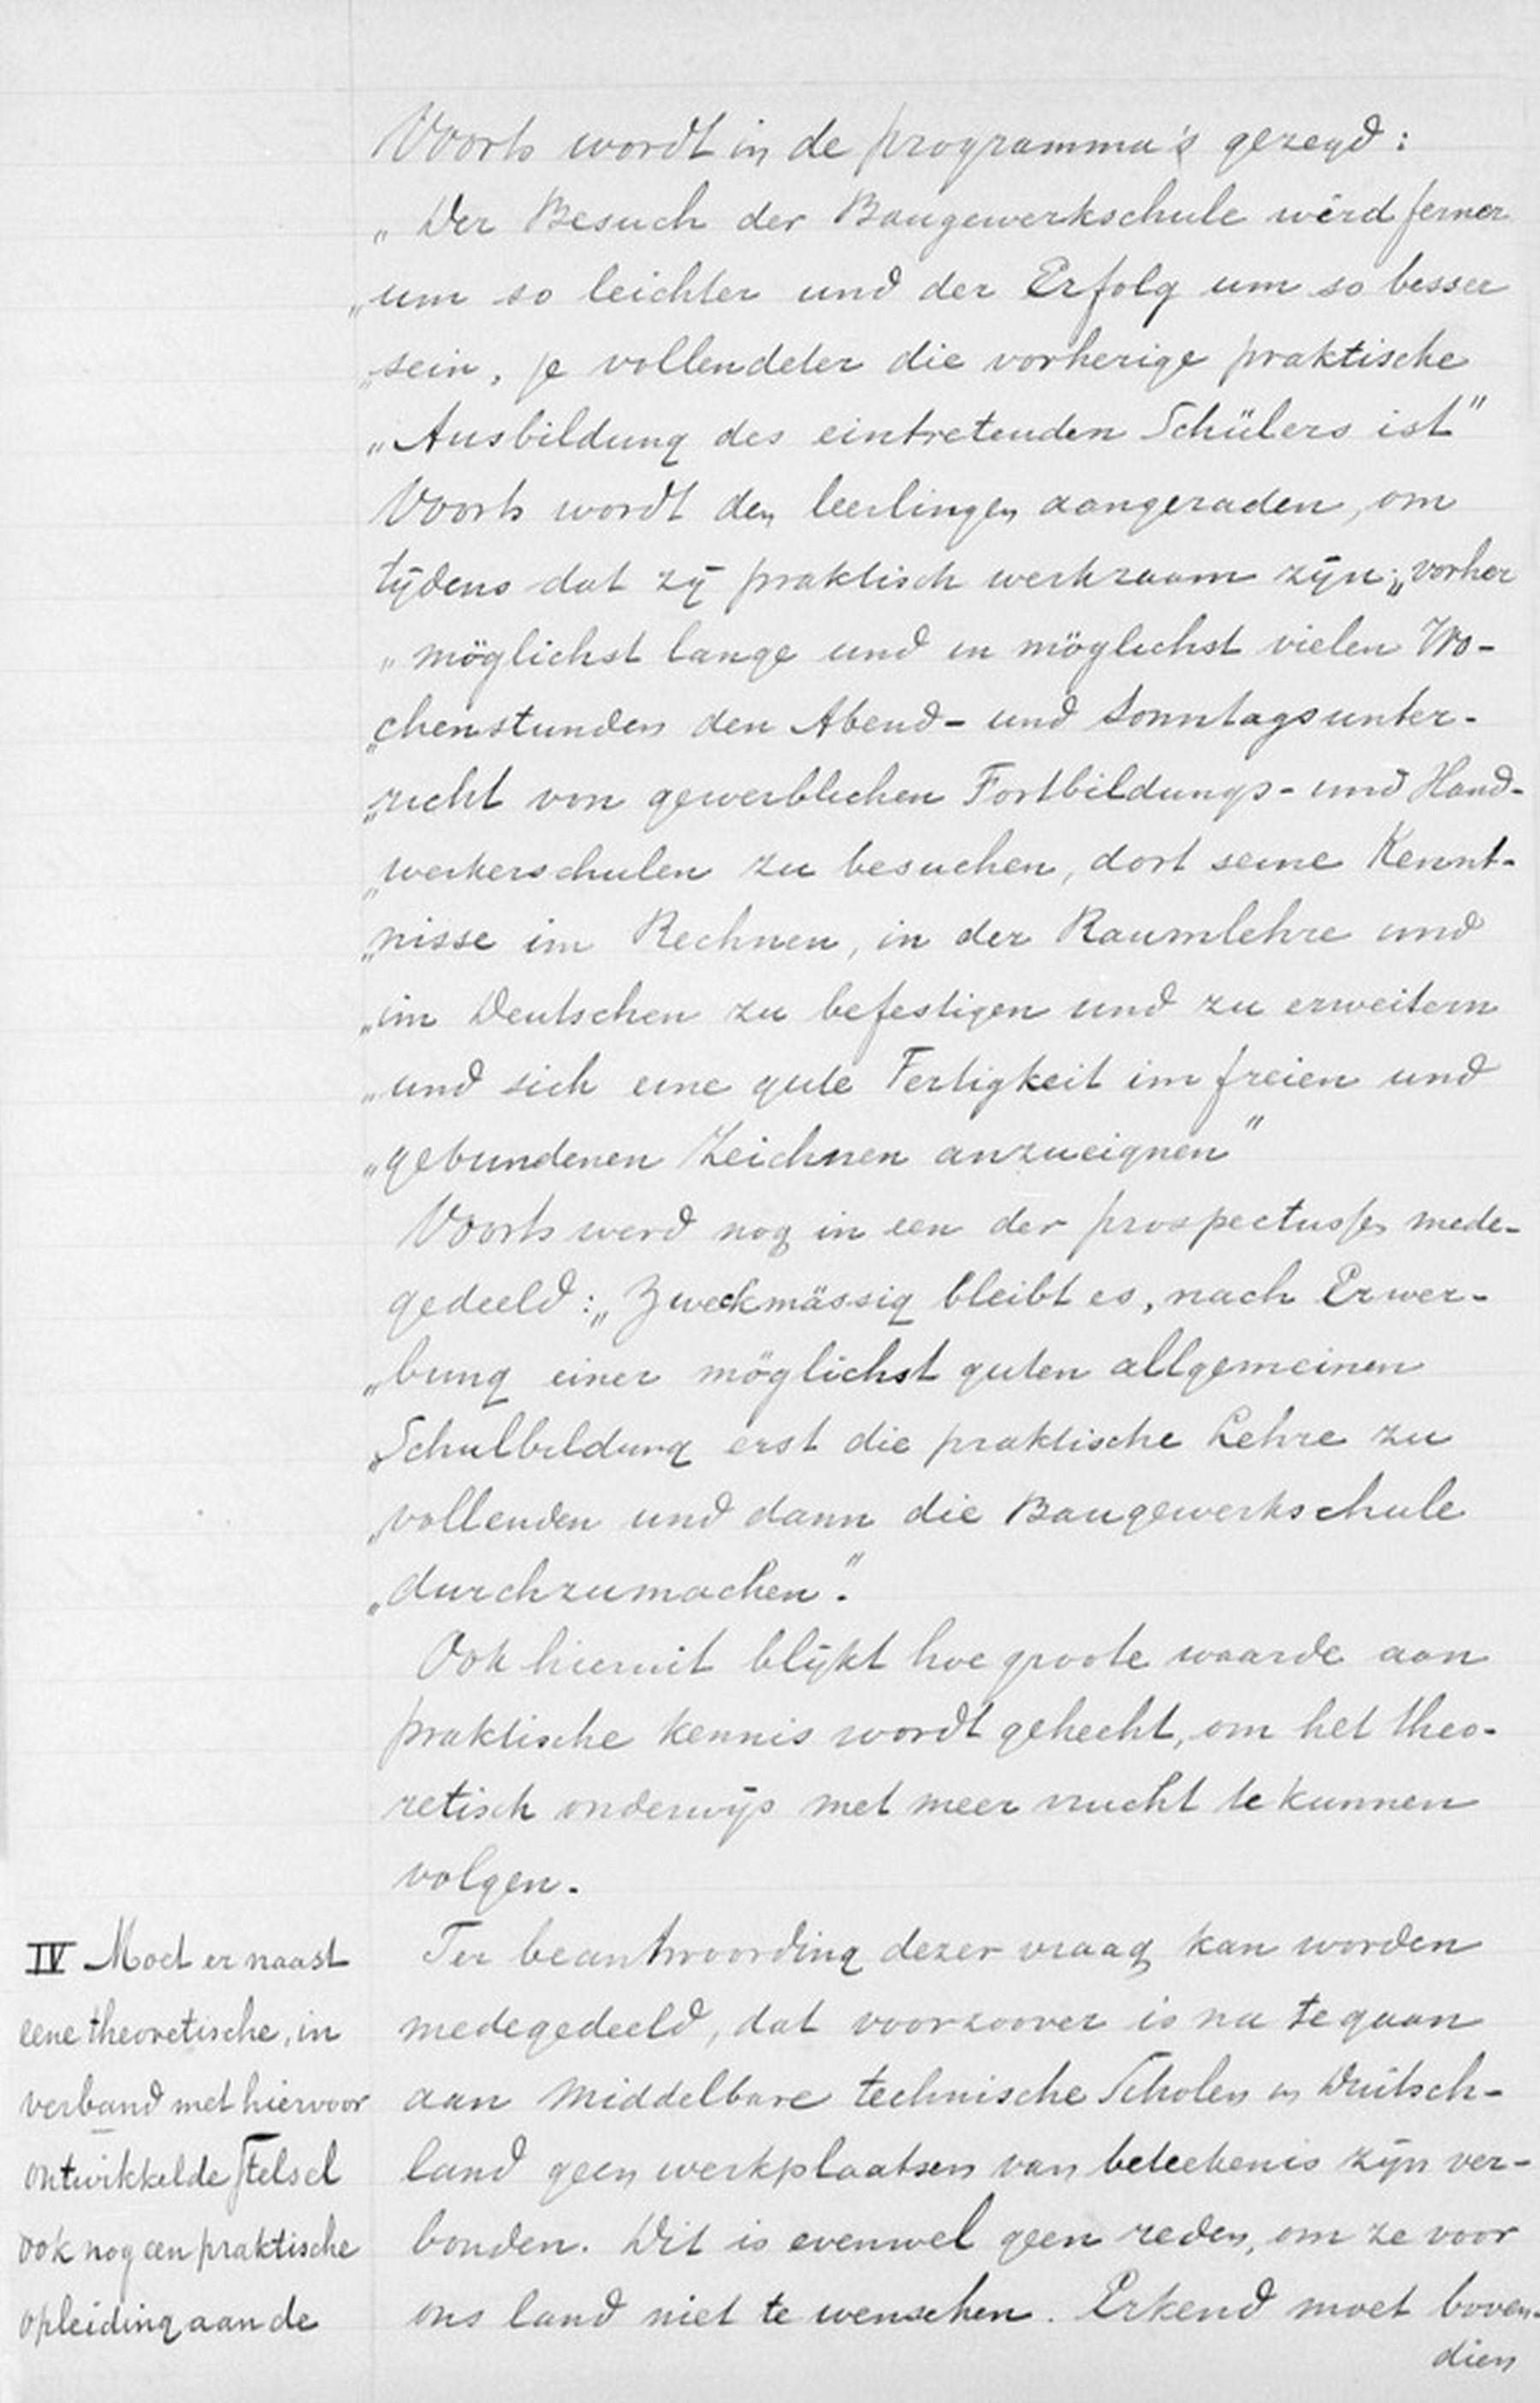 Voorts wordt in de programma's gezegd:
„Der Besuch der Baugewerkschule wird ferner
„um so leichter und der Erfolg um so besser
„sein, je vollendeter die vorherige praktische
„Ausbildung des eintretenden Schülers ist"
Voorts wordt den leerlingen aangeraden, om
tijdens dat zij praktisch werkzaam zijn: „vorher
„möglichst lange und in möglichst vielen Wo-
„chenstunden den Abend- und Sonntagsunter-
„richt von gewerblichen Fortbildungs- und Hand-
„werkerschulen zu besuchen, dort seine Kennt-
„nisse im Rechnen, in der Raumlehre und
„im Deutschen zu befestigen und zu erweitern
„und sich eine gute Fertigkeit im freien und
„gebundenen Zeichnen anzueignen"
Voorts werd nog in een der prospectussen mede-
gedeeld: „Zweckmässig bleibt es, nach Erwer-
„bung einer möglichst guten allgemeinen
„Schulbildung erst die praktische Lehre zu
„vollenden und dann die Baugewerkschule
„durchzumachen".
Ook hieruit blijkt hoe groote waarde aan
praktische kennis wordt gehecht, om het theo-
retisch onderwijs met meer vrucht te kunnen
volgen.
IV Moet er naast
eene theoretische, in
verband met hiervoor
ontwikkelde stelsel
ook nog een praktische
opleiding aan de
Ter beantwoording dezer vraag kan worden
medegedeeld, dat voorzoover is na te gaan
aan middelbare technische Scholen in Duitsch-
land geen werkplaatsen van beteekenis zijn ver-
bonden. Dit is evenwel geen reden, om ze voor
ons land niet te wenschen. Erkend moet boven-
dien